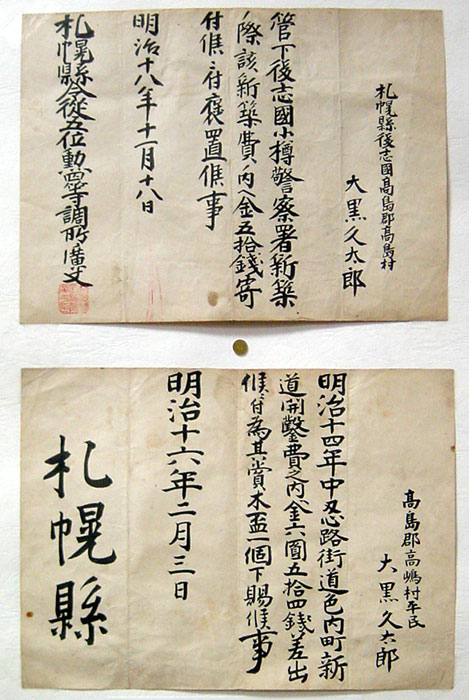 札幌縣後志國高島郡高島村
大黒久太郎
管下後志國小樽警察署新築
ノ際該新築費ノ内ヘ金五拾錢寄
付候ニ付褒置候事
明治十八年十一月十八日
札幌縣令從五位勳四等調所廣丈
高島郡高嶋村平民
大黒久太郎
明治十四年中忍路街道色内町新
道開鑿費之内ヘ金六圓五拾四錢差出
候ニ付為其賞木盃一個下賜候事
明治十六年二月三日
札幌縣